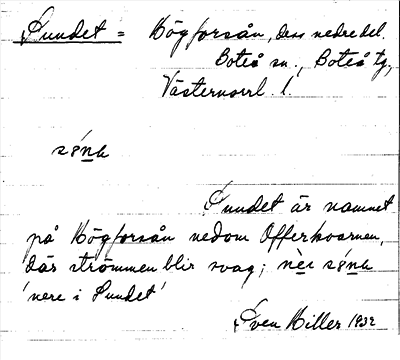 Sundet = Högforsån, dess nedre del.
Boteå sn., Boteå tg,
Västernorrl. l.
Sundet är namnet
på Högforsån nedom Offerkvarnen,
där strömmen blir svag;
'nere i Sundet'
Sven Hiller 1932